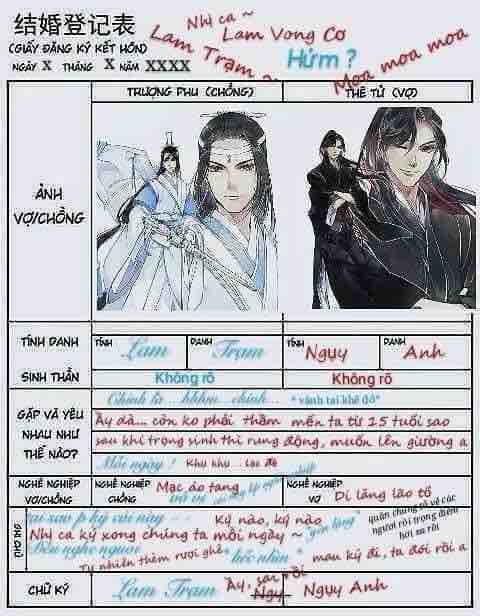 结婚登记表
(GIẤY ĐĂNG KÝ KẾT HÔN)
NGÀY X THÁNG X NĂM XXXX
Nhị ca ~
Lam Trạm ~
Lam Vong Cơ
Hửm ?
Moa moa moa
TRƯỢNG PHU (CHỒNG) THÊ TỬ (VỢ)
ẢNH VỢ/CHỒNG
TÍNH DANH TÍNH Lam DANH Trạm TÍNH Ngụy DANH Anh
SINH THẦN Không rõ Không rõ
GẶP VÀ YÊU NHAU NHƯ THẾ NÀO?
Chính là ...hhhm... chính... *vành tai khẽ đỏ*
Ầy dà... còn ko phải thầm mến ta từ 15 tuổi sao
sau khi trọng sinh thì rung động, muốn lên giường a
Mỗi ngày ! Khụ khụ... lạc đề
NGHỀ NGHIỆP VỢ/CHỒNG NGHỀ NGHIỆP CHỒNG Mạc áo tang NGHỀ NGHIỆP VỢ Di lăng lão tổ
tại sao p ký cái này Ký nào, ký nào
Nhị ca ký xong chúng ta mỗi ngày ~
quân chúng rõ về các người rồi trọng điểm
Tự nhiên thèm rượi ghê mau ký đi, ta đói rồi a
CHỮ KÝ Lam Trạm Ầy, sai rồi Ngụy Ngụy Anh